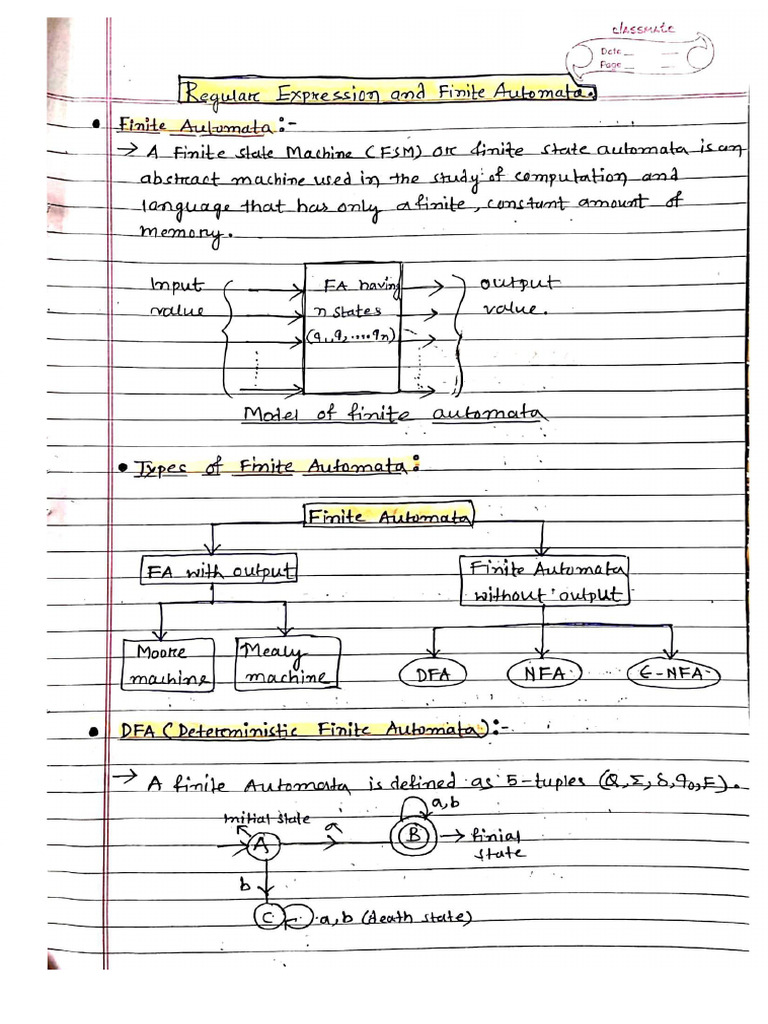 classmate
Date
Page
Regular Expression and Finite Automata.
• Finite Automata :-
→ A Finite State Machine (FSM) or finite state automata is an
abstract machine used in the study of computation and
language that has only a finite, constant amount of
memory.
Input
value
FA having
n states
(q₁, q, ....qn)
output
value.
Model of finite automata
• Types of Finite Automata :
Finite Automata
FA with output
Finite Automata
without output
Moore
machine
Mealy
machine
DFA
NFA
∈-NFA
• DFA (Deterministic Finite Automata) :-
→ A finite Automata is defined as 5-tuples (Q, Σ, δ, q₀, F).
initial state
A
a
B
a,b
→ finial
state
b
C
a, b (death state)